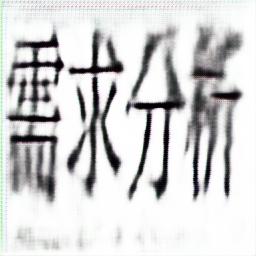 需求分析